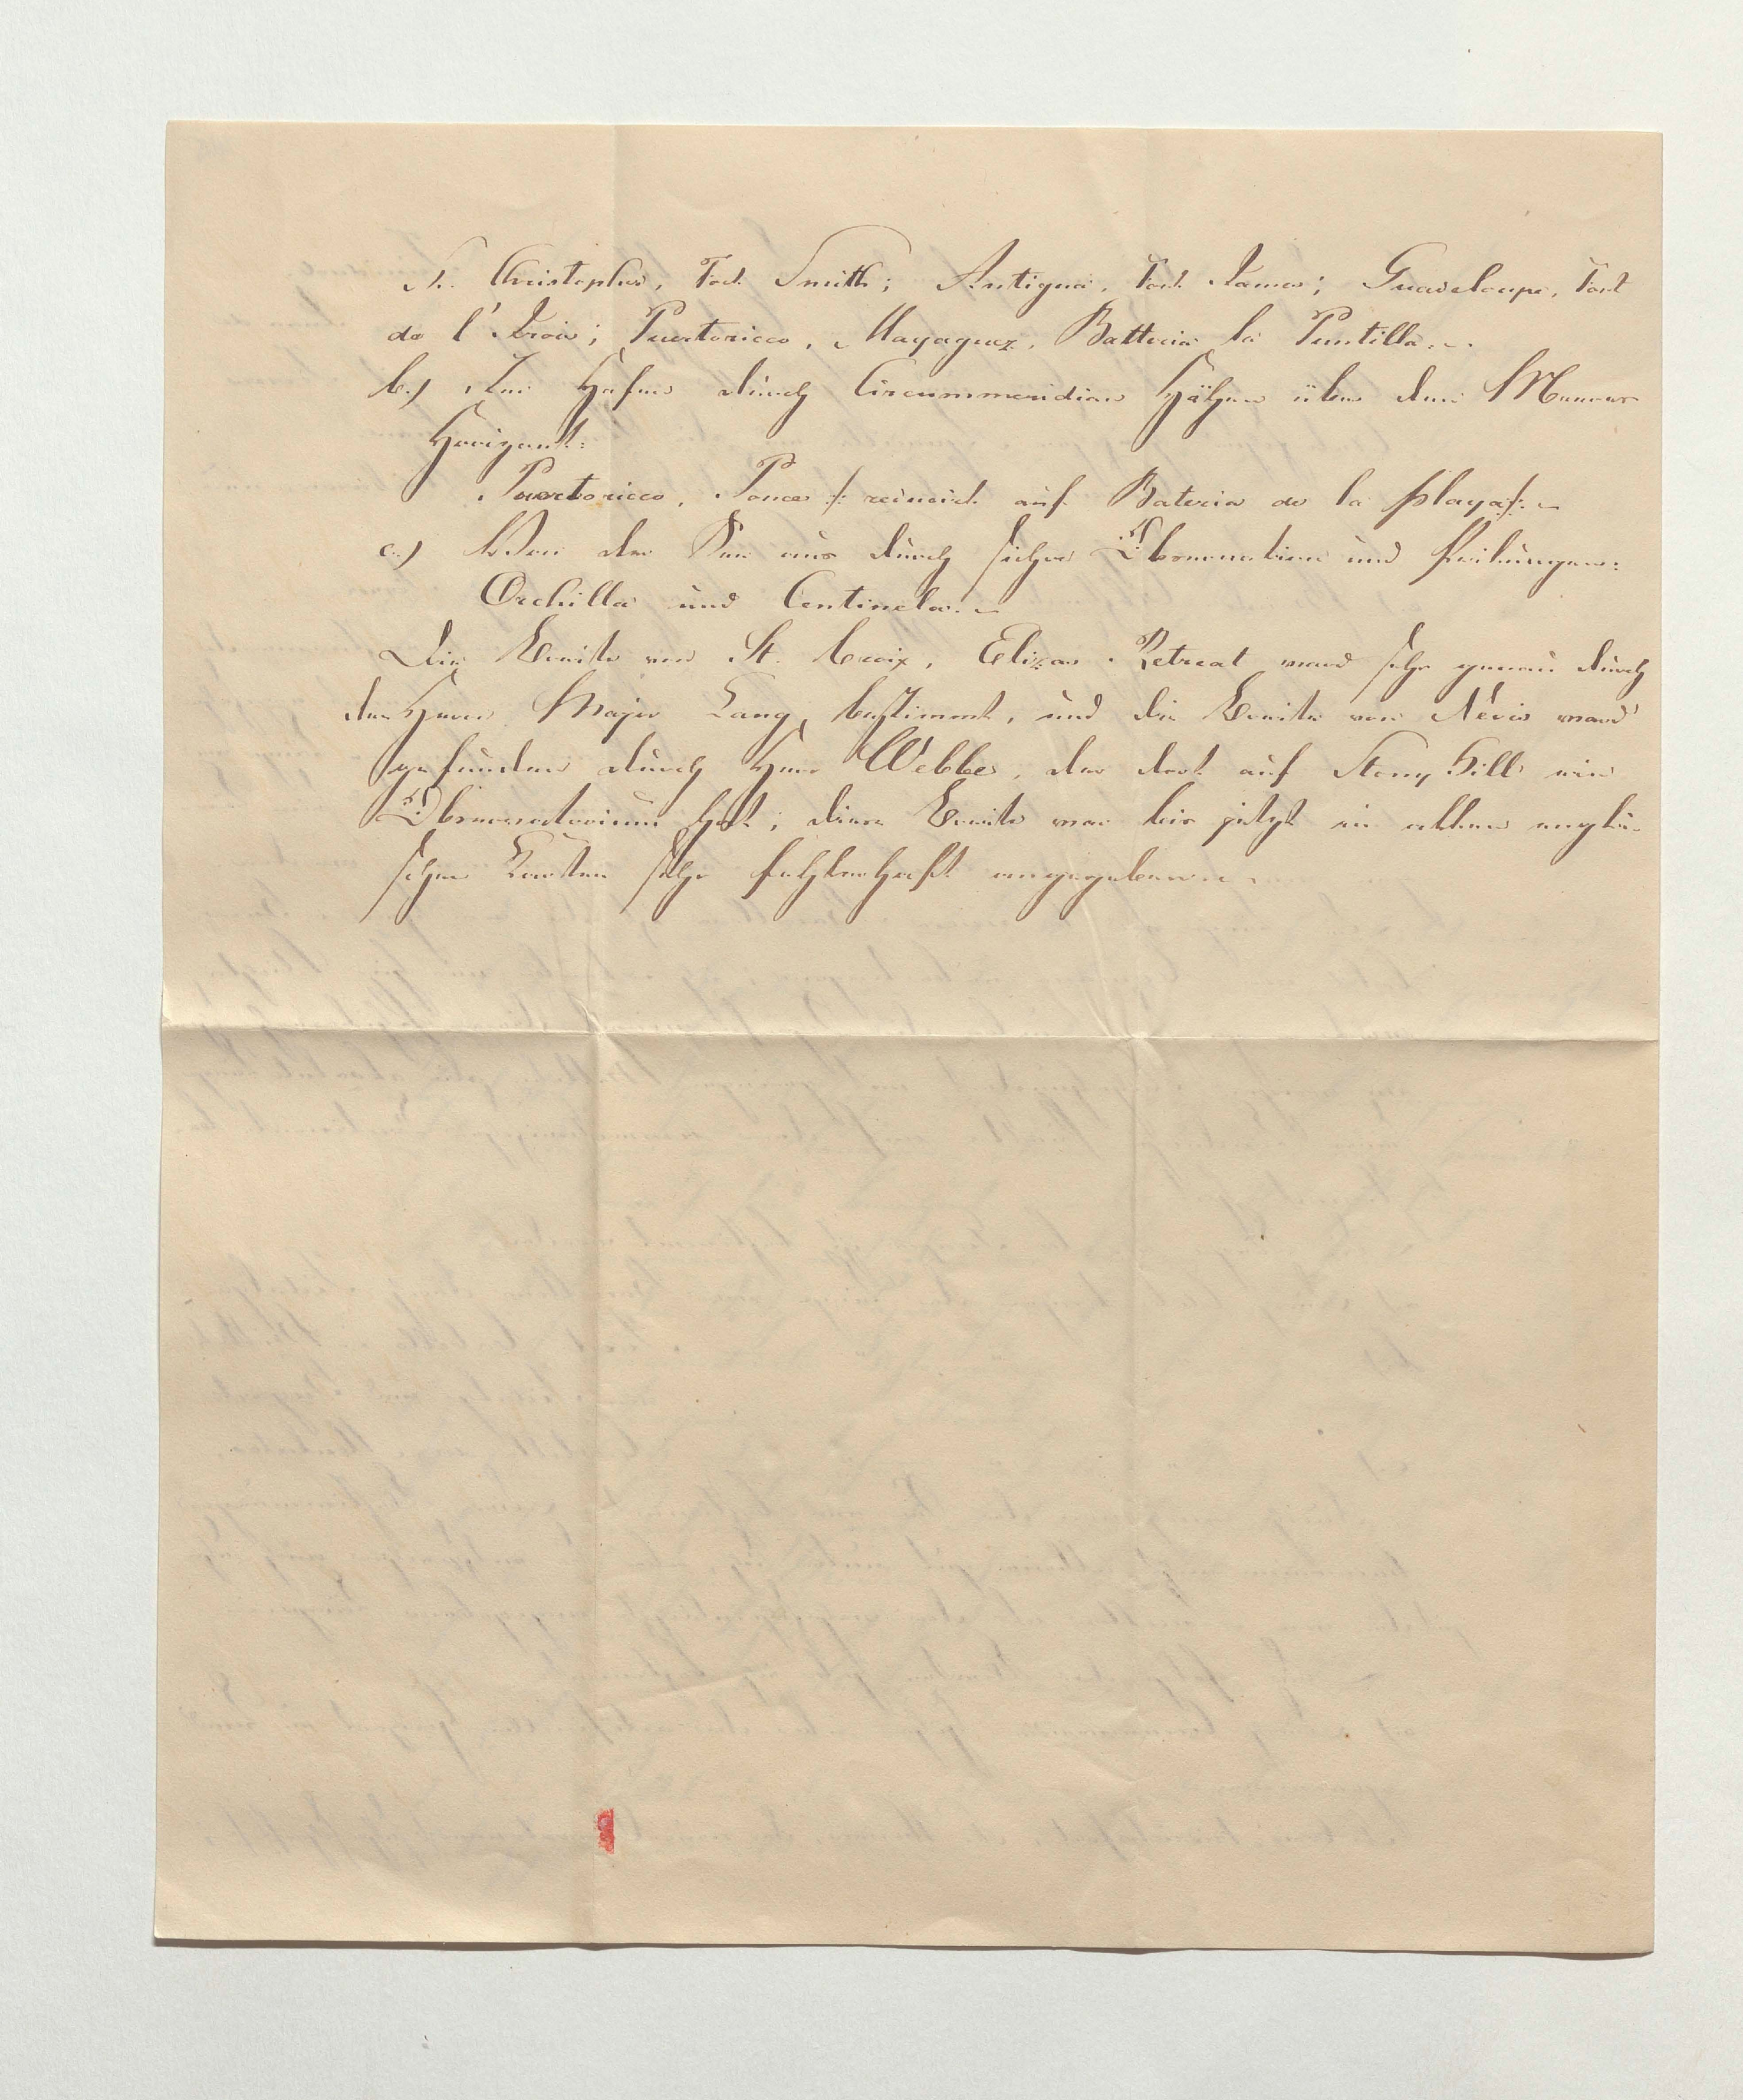 St. Christopher, Fort Smith; Antigua, Fort James; Guadeloupe, Fort
de l'Irois; Puertoricco, Mayaguez, Batteria la Puntilla.
b.) Im Hafen durch Circummeridian Höhen über dem Meeres
Horizont:
Puertoricco, Ponce /: reducirt auf Bateria de la playa :/.
c.) Von der See aus durch sichre Observation und Peilungen:
Orchilla und Centinela.
Die Breite von St. Croix, Elizas Retreat ward sehr genau durch
den Herrn Major Lang, bestimmt, und die Breite von Nevis ward
gefunden durch Herr Webbe, der dort auf Stony Hill ein
Observatorium hat; diese Breite war bis jetzt in allen engli-
schen Karten sehr fehlerhaft angegeben.